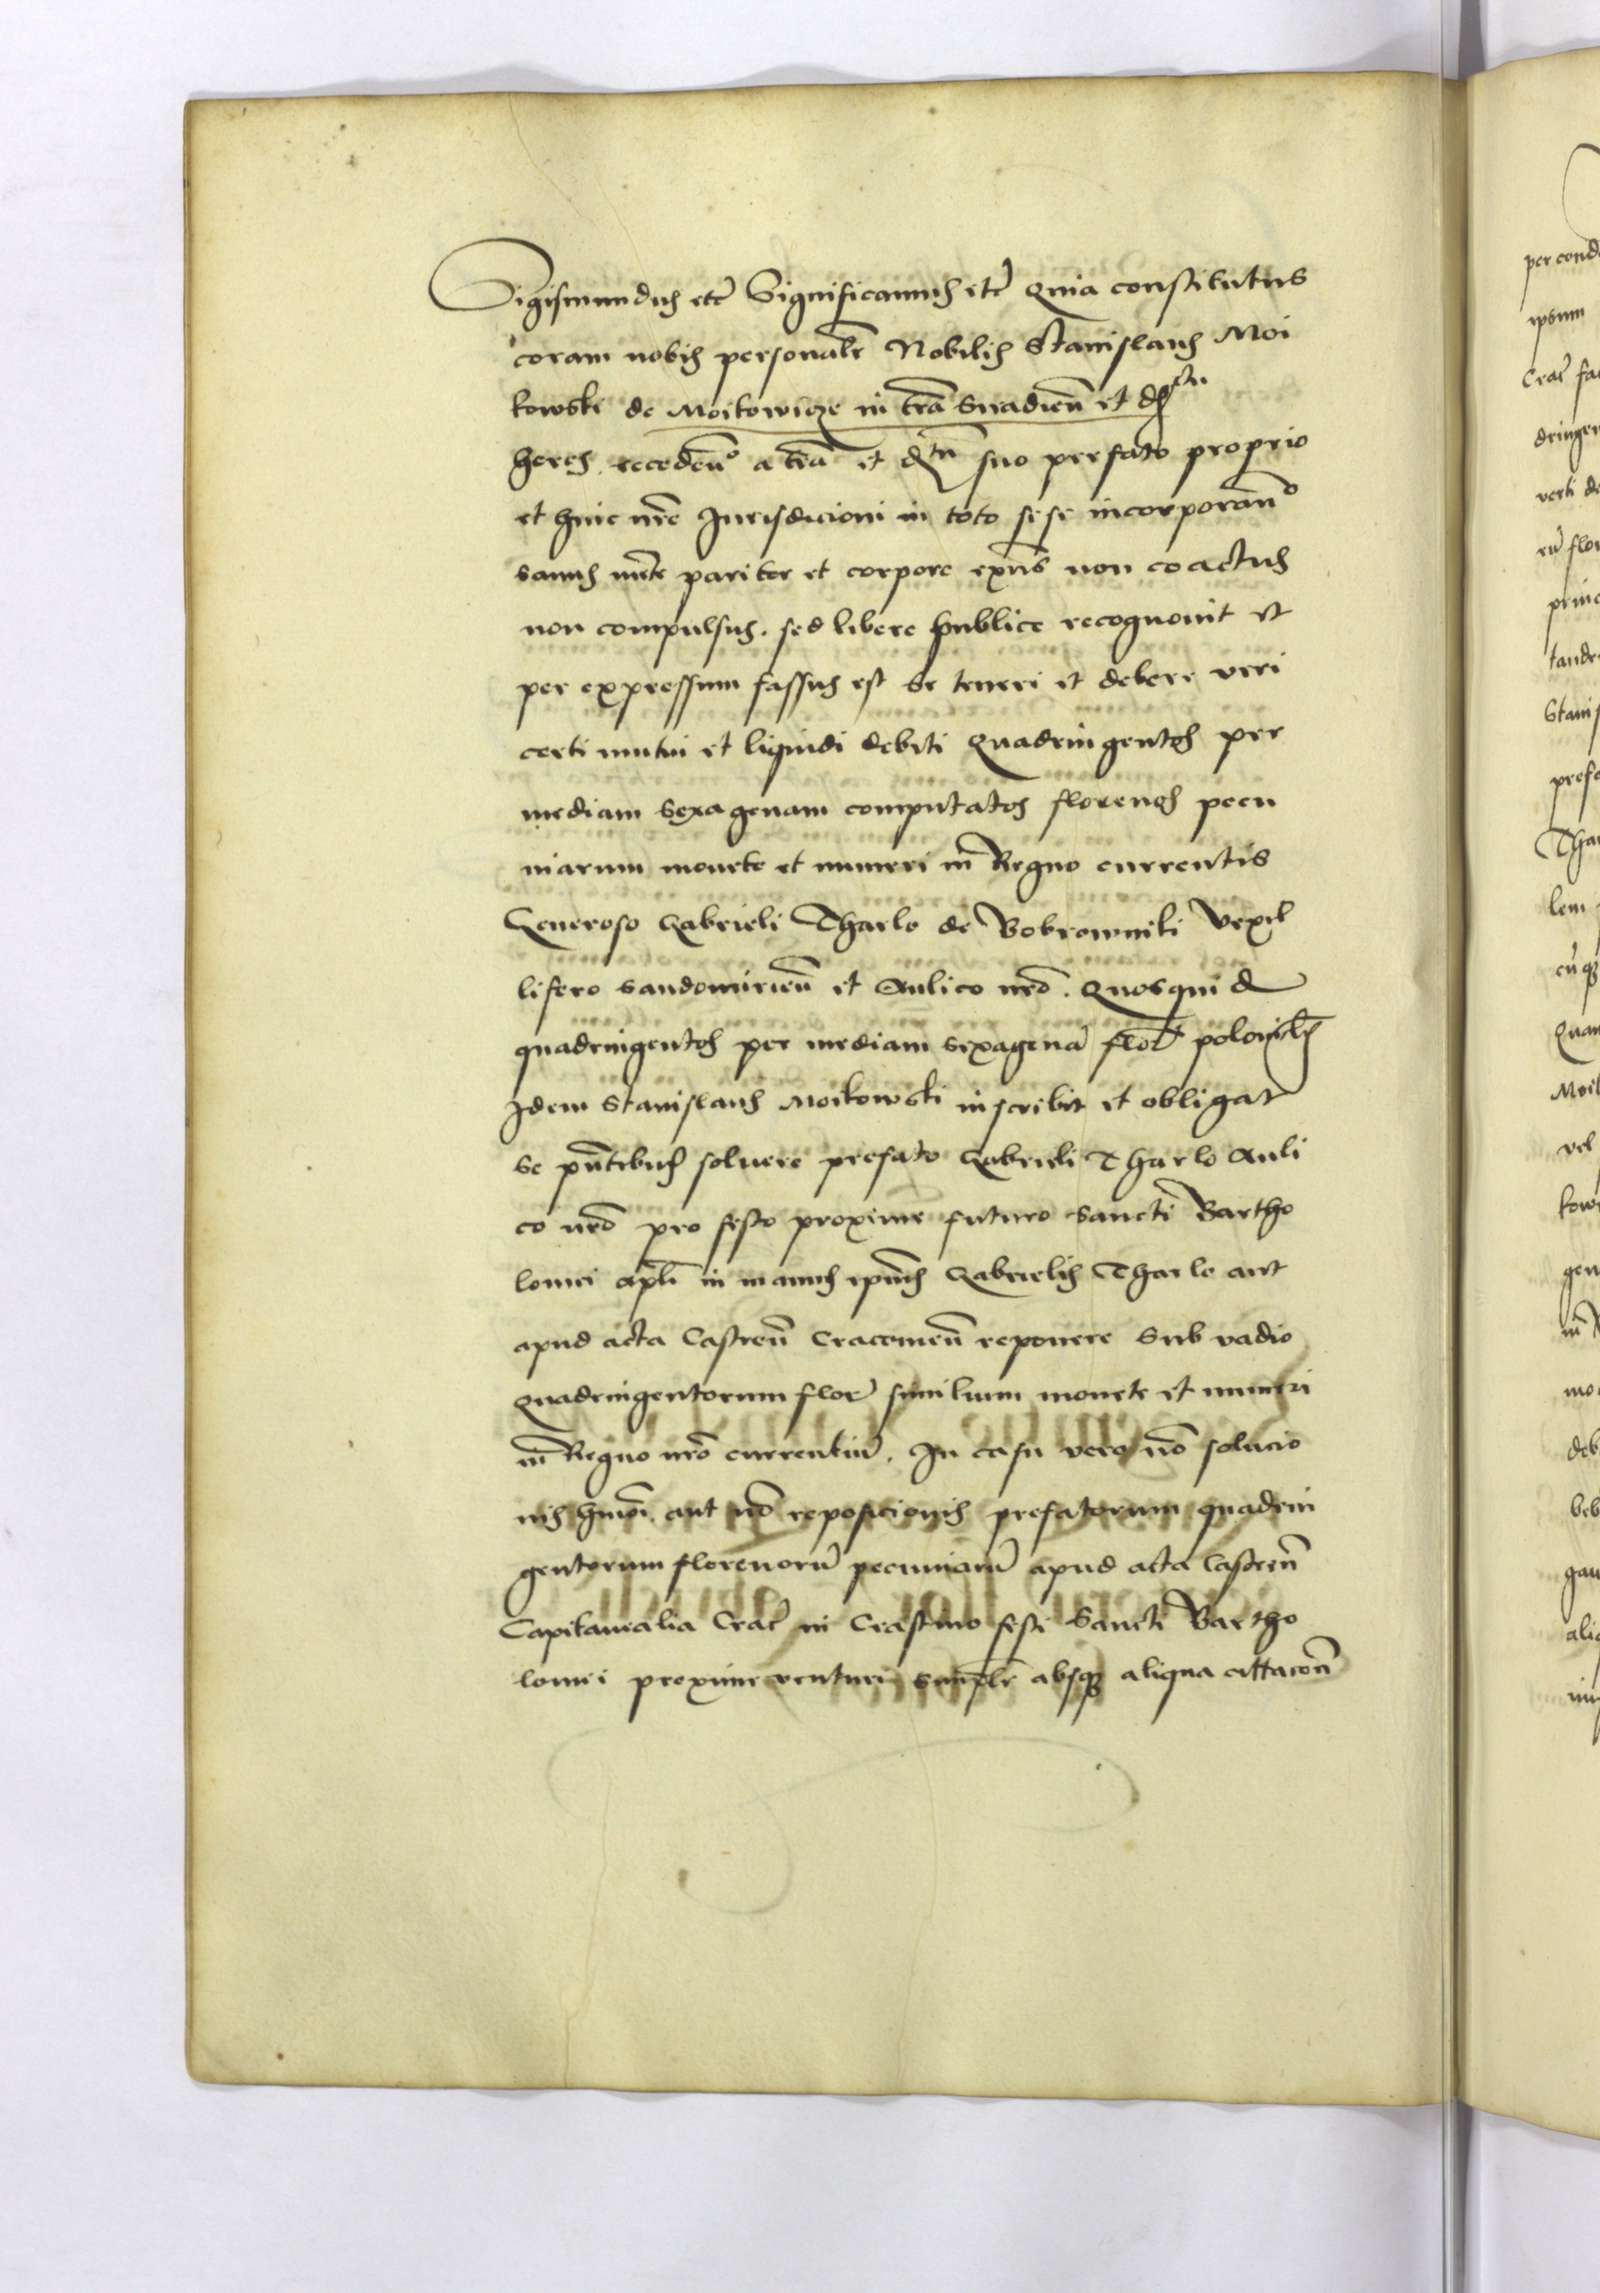 Sigismundus etc Significamus etc Quia constitutus
coram nobis personalr Nobilis Stanislaus Moi
kowski de Moikowicze in tra Siradien et
heres recedendo a tra et suo prefato proprio
et huic nre Jurisdicioni in toto sese incorporando
sanus mente pariter et corpore exns non coactus
non compulsus. sed libere publice recognouit et
per expressum fassus est se teneri et debere veri
certi mutui et liquidi debiti quadringentos per
mediam sexagenam computatos florenos pecu
niarum monete et numeri in Regno currentis
Generoso Gabrieli Tharlo de Bobrowniki Vexil
lifero Sandomirien et Aulico nro. Quosquid
quadringentos per mediam sexagena flor polonicales
Idem Stanislaus Moikowski inscribit et obligat
se pntibus soluere prefato Gabrieli Tharlo Auli
co nro pro festo proxime futuro Sancti Bartho
lomei apli in manus ipsius Gabrielis Tharlo aut
apud acta Castren Cracouien reponere Sub vadio
quadringentorum flor similium monete et numeri
in Regno nro currentiu. In casu vero no solucio
nis hmoi aut no reposicionis prefatorum quadrin
gentorum florenoru pecuniaru apud acta Castren
Capitanealia Crac in Crastino festi Sancti Bartho
lomei proxime venturi simplr absq aliqua cittacon
per cond
ipsum
Crac fa
dringen
verti de
flor
princ
tande
Stanis
prefa
Thar
lem
Quam
Moik
vel
kows
gen
in
mo
deb
beb
gau
aliq